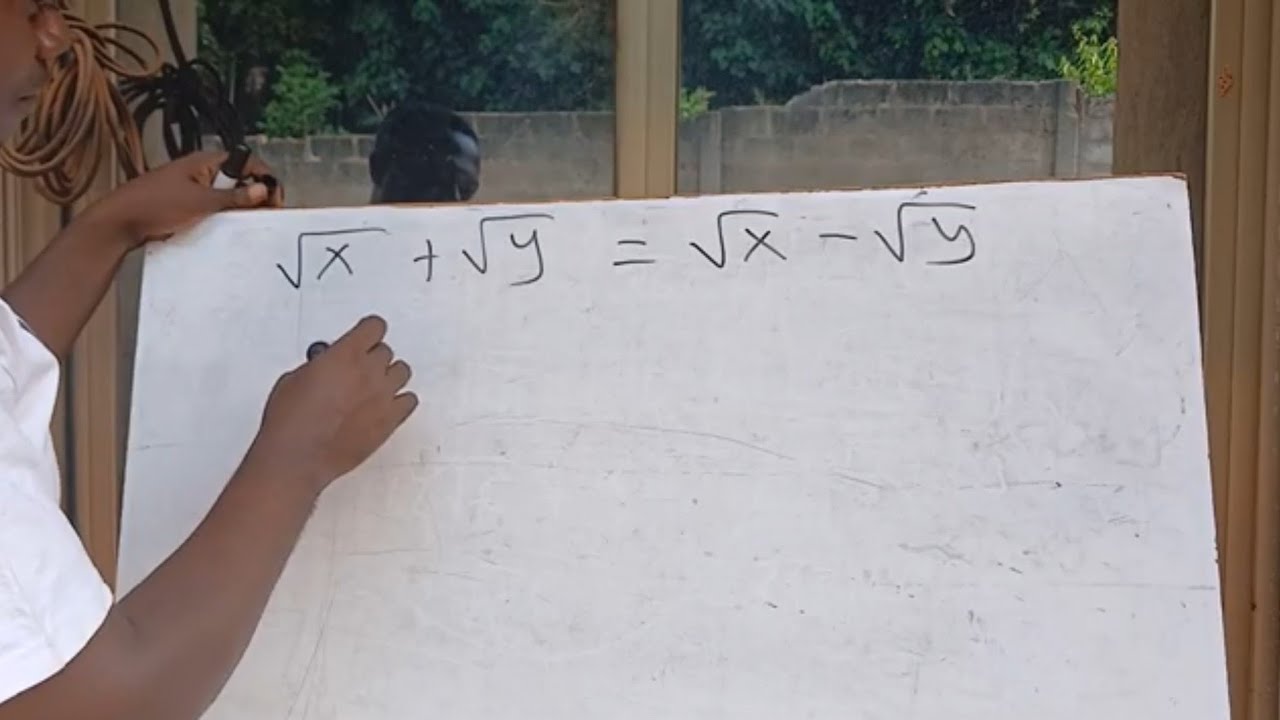 √x + √y = √x - √y